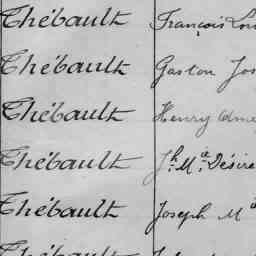 Thébault François
Thébault Gaston
Thébault Henry
Thébault Jh. Mie. Désiré
Thébault Joseph M
Thébault